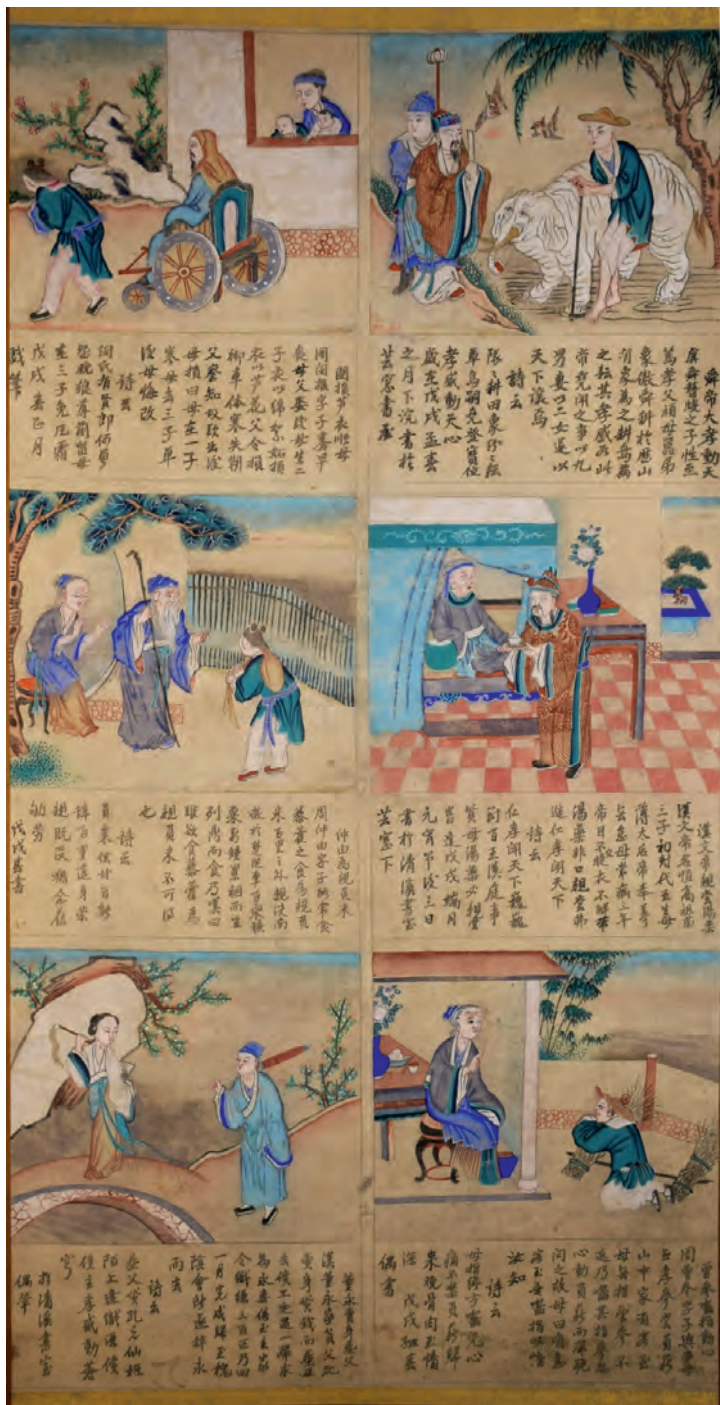 舜帝大孝動天
虞舜瞽瞍之子性至
篤孝父頑母嚚弟
象傲舜耕於歷山
有象為之耕鳥為
之耘其孝感如此
帝堯聞之事以九
男妻以二女遂以
天下讓焉
詩云
隊々耕田象紛々耘
草鳥嗣堯登寶位
孝感動天心
歲在戊戌孟春
之月下浣書於
芸窓書屋
閔損芦衣順母
周閔損字子騫早
喪母父娶後母生二
子衣以綿絮妬損
衣以芦花父令損
御車体寒失靷
父察知故欲出後
母損曰母在一子
寒母去三子單
後母悔改
詩云
閔氏有賢郎何曾
怨晚娘尊前賢母
在三子免风霜
戊戌春正月
戲筆
漢文帝親嘗湯葯
漢文帝名恒高祖第
三子初封代王生母
薄太后帝奉養
無怠母常病三年
帝目不交睫衣不解帶
湯藥非口親嘗弗
進仁孝聞天下
詩云
仁孝聞天下巍巍
冠百王漢庭事
賢母湯藥必親嘗
旹逢戊戌端月
元宵節後三日
書於清溪書室
芸窓下
仲由為親負米
周仲由字子路常食
藜藿之食為親負
米百里之外親沒南
遊於楚從車百乘積
粟萬鍾累裀而坐
列鼎而食乃嘆曰
雖欲食藜藿為
親負米不可得
也
詩云
負米供甘旨寧
辭百里遙身榮
親既沒猶念舊
劬勞
戊戌春書
曾參嚙指動心
周曾參字子輿事母
至孝參曾負薪
山中家有客至
母無措望參不
還乃嚙其指參忽
心動負薪而歸跪
問之故母曰有客
至吾嚙指以悟
汝知
詩云
母指纔方嚙兒心
痛不禁負薪歸
來晚骨肉至情
深 戊戌孟春
偶書
董永賣身葬父
漢董永家貧父死
賣身貸錢而葬及
去償工途遇一婦求
為永妻俱至主家
令織縑三百疋乃回
一月完成歸至槐
陰會所遂辭永
而去
詩云
葬父貸孔兄仙姬
陌上逢織縑償
債主孝感動蒼
穹
於清溪書室
偶筆